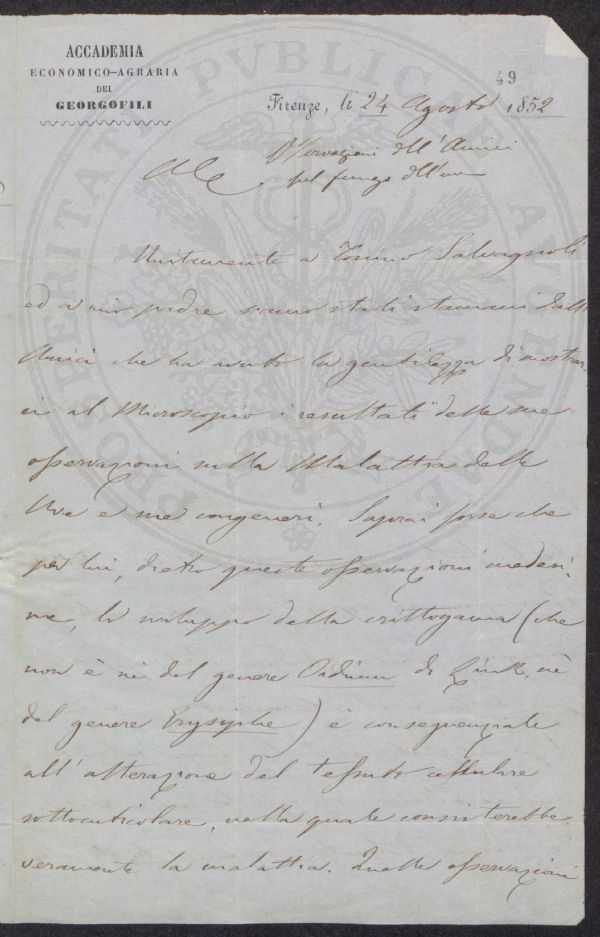 ACCADEMIA
ECONOMICO-AGRARIA
DEI
GEORGOFILI
49
Firenze, li 24 Agosto 1852
Osservazioni dell'Amici
sul fungo dell'uva
Unitamente a Salvagnoli
ed a mio padre siamo stati stamani dall'
Amici che ha avuto la gentilezza di mostrar
ci al Microscopio i resultati delle sue
osservazioni sulla Malattia delle
Uve e sue congeneri. Saprai forse che
per lui, dietro queste osservazioni medesi
me, lo sviluppo della crittogama (che
non è nè del genere Oidium di Link, nè
del genere Erysiphe) è conseguenziale
all'alterazione del tessuto cellulare
sottocuticolare, nella quale consisterebbe
veramente la malattia. Quelle osservazioni
PROSPERITATI PVBLICAE AVGENDAE